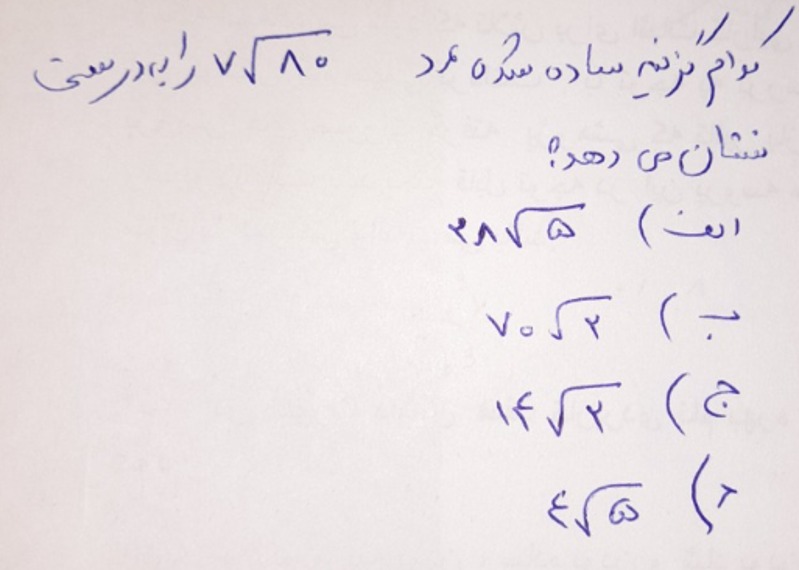 کدام گزینه ساده شده عدد ۷√۸۰ را به درستی
نشان می دهد؟
الف) ۲۸√۵
ب) ۷۰√۲
ج) ۱۴√۲
د) ۴√۵